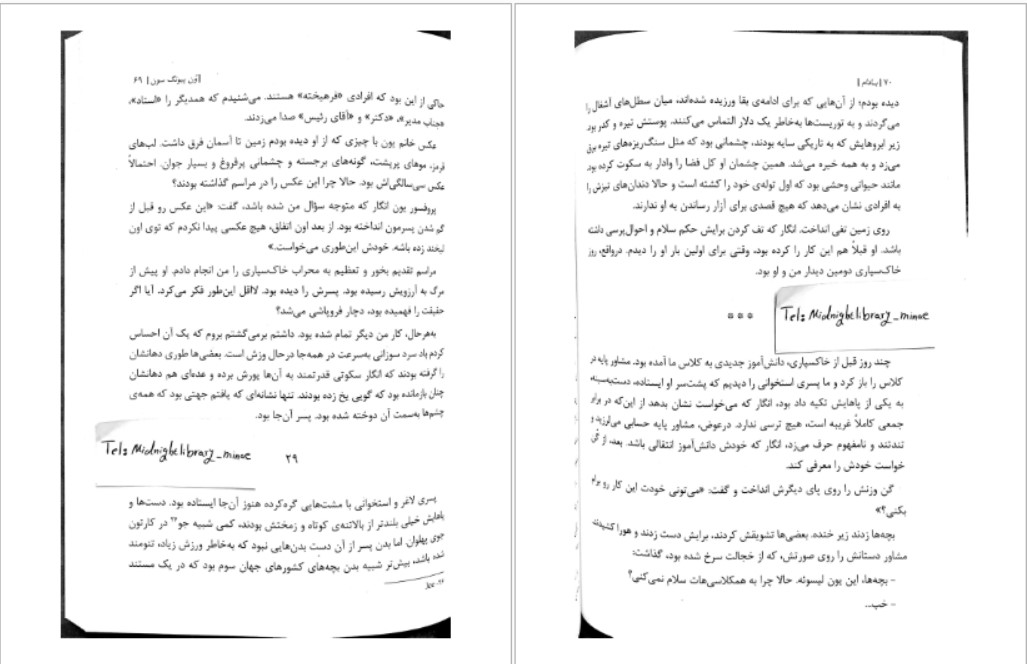 اون پیونگ سون | ۶۹
حاکی از این بود که افرادی «فرهیخته» هستند. می‌شنیدم که همدیگر را «استاد»،
«جناب مدیر»، «دکتر» و «آقای رئیس» صدا می‌زدند.
عکس خانم یون با چیزی که از او دیده بودم زمین تا آسمان فرق داشت. لب‌های
قرمز، موهای پرپشت، گونه‌های برجسته و چشمانی پرفروغ و بسیار جوان. احتمالاً
عکس سی‌سالگی‌اش بود. حالا چرا این عکس را در مراسم گذاشته بودند؟
پروفسور یون انگار که متوجه سؤال من شده باشد، گفت: «این عکس رو قبل از
گم شدن پسرمون انداخته بود. از بعد اون اتفاق، هیچ عکسی پیدا نکردم که توی اون
لبخند زده باشه. خودش این‌طوری می‌خواست.»
مراسم تقدیم بخور و تعظیم به محراب خاک‌سپاری را من انجام دادم. او پیش از
مرگ به آرزویش رسیده بود. پسرش را دیده بود. لااقل این‌طور فکر می‌کرد. آیا اگر
حقیقت را فهمیده بود، دچار فروپاشی می‌شد؟
به‌هرحال، کار من دیگر تمام شده بود. داشتم برمی‌گشتم بروم که یک آن احساس
کردم باد سرد سوزانی به‌سرعت در همه‌جا درحال وزش است. بعضی‌ها طوری دهانشان
را گرفته بودند که انگار سکوتی قدرتمند به آن‌ها یورش برده و عده‌ای هم دهانشان
چنان بازمانده بود که گویی یخ زده بودند. تنها نشانه‌ای که یافتم جهتی بود که همه‌ی
چشم‌ها به‌سمت آن دوخته شده بود. پسر آن‌جا بود.
Tel: Midnightelibrary_minoe
۲۹
پسری لاغر و استخوانی با مشت‌هایی گره‌کرده هنوز آن‌جا ایستاده بود. دست‌ها و
پاهایش خیلی بلندتر از بالاتنه‌ی کوتاه و زمختش بودند، کمی شبیه جو در کارتون
جوی پهلوان. اما بدن پسر از آن دست بدن‌هایی نبود که به‌خاطر ورزش زیاد، تنومند
شده باشد، بیش‌تر شبیه بدن بچه‌های کشورهای جهان سوم بود که در یک مستند
Joe
۷۰ | بادام |
دیده بودم؛ از آن‌هایی که برای ادامه‌ی بقا ورزیده شده‌اند، میان سطل‌های آشغال را
می‌گردند و به توریست‌ها به‌خاطر یک دلار التماس می‌کنند. پوستش تیره و کدر بود
زیر ابروهایش که به تاریکی سایه بودند، چشمانی بود که مثل سنگ‌ریزه‌های تیره برق
می‌زد و به همه خیره می‌شد. همین چشمان او کل فضا را وادار به سکوت کرده بود
مانند حیوانی وحشی بود که اول توله‌ی خود را کشته است و حالا دندان‌های تیزش را
به افرادی نشان می‌دهد که هیچ قصدی برای آزار رساندن به او ندارند.
روی زمین تفی انداخت. انگار که تف کردن برایش حکم سلام و احوال‌پرسی داشته
باشد. او قبلاً هم این کار را کرده بود، وقتی برای اولین بار او را دیدم. درواقع، روز
خاک‌سپاری دومین دیدار من و او بود.
Tel: Midnightelibrary_minoe
***
چند روز قبل از خاکسپاری، دانش‌آموز جدیدی به کلاس ما آمده بود. مشاور پایه در
کلاس را باز کرد و ما پسری استخوانی را دیدیم که پشت‌سر او ایستاده، دست‌به‌سینه،
به یکی از پاهایش تکیه داد بود، انگار که می‌خواست نشان بدهد از این‌که در برابر
جمعی کاملاً غریبه است، هیچ ترسی ندارد. درعوض، مشاور پایه حسابی می‌لرزید و
تندتند و نامفهوم حرف می‌زد، انگار که خودش دانش‌آموز انتقالی باشد. بعد، از گُن
خواست خودش را معرفی کند.
گن وزنش را روی پای دیگرش انداخت و گفت: «می‌تونی خودت این کار رو برام
بکنی؟»
بچه‌ها زدند زیر خنده. بعضی‌ها تشویقش کردند، برایش دست زدند و هورا کشیدند.
مشاور دستانش را روی صورتش، که از خجالت سرخ شده بود، گذاشت:
- بچه‌ها، این یون لیسوئه. حالا چرا به همکلاسی‌هات سلام نمی‌کنی؟
- خب...